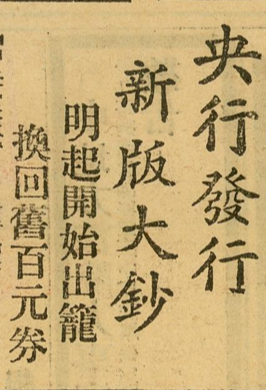 央行發行
新版大鈔
明起開始出籠
換回舊百元券